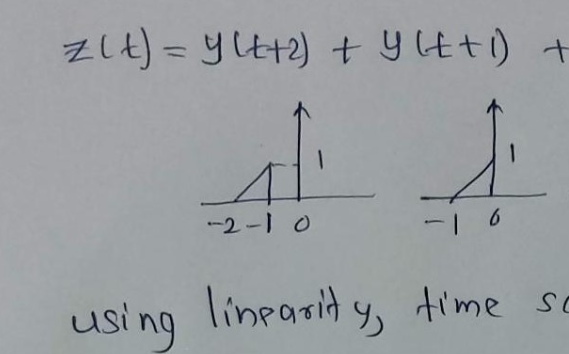 z(t) = y(t+2) + y(t+1) +
1 1
-2 -1 0 -1 0
using linearity, time